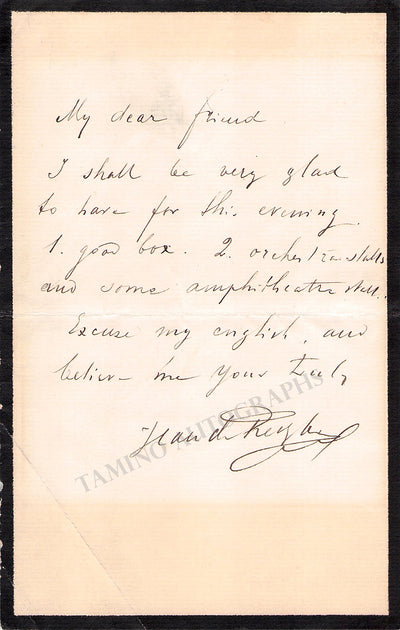 My dear friend
I shall be very glad
to have for this evening.
1. good box. 2. orchestra stalls
and some amphitheatre stall.
Excuse my english, and
believe me your truly
Jean de Reszke
TAMINO AUTOGRAPHS